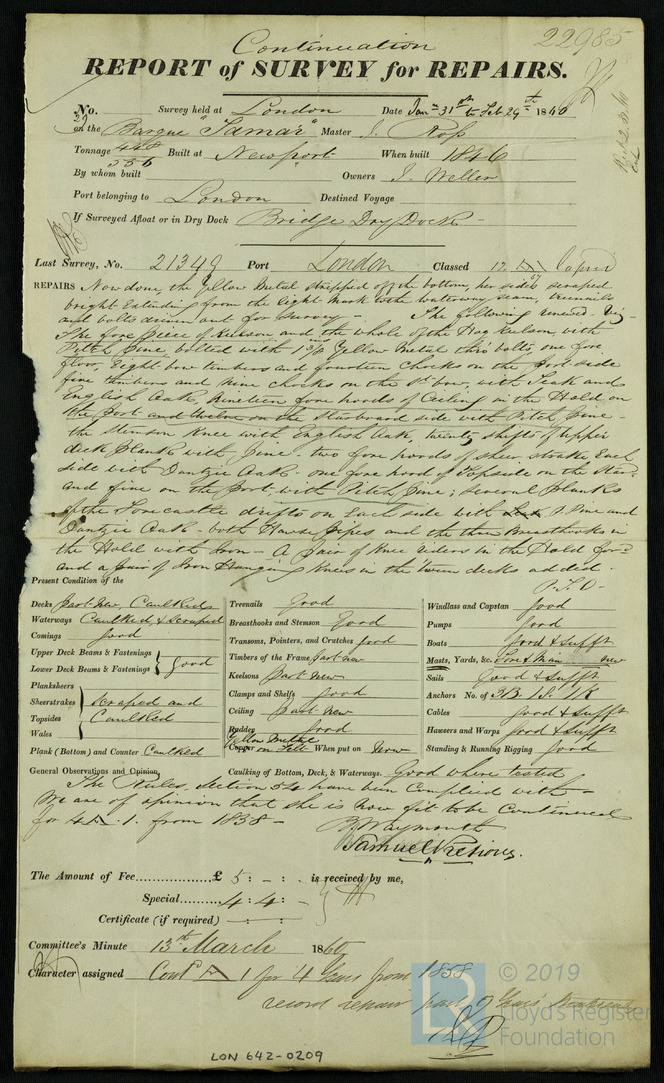 22985
Continuation
REPORT of SURVEY for REPAIRS.
No. Survey held at London Date Jany 31st to Feb 29th 1860
on the Barque "Tamar" Master J. Ross
Tonnage 448 Built at Newport When built 1846
556
By whom built Owners J. Weller
Port belonging to London Destined Voyage
If Surveyed Afloat or in Dry Dock Bridge Dry Dock
Last Survey, No. 21349 Port London Classed 12 A1 Expired
REPAIRS Now done, the yellow Metal stripped off the bottom, her sides scraped
bright Extending from the light Mark to the waterway seam, treenails
and bolts driven out for survey - The following renewed - Viz -
The fore piece of Keelson and the whole of the Hog Keelson, with
Pitch Pine bolted with 1 3/8 ins Yellow Metal thro' bolts, one fore
floor, Eight bow timbers and fourteen chocks on the port side
five timbers and nine chocks on the St bow, with Teak and
English Oak, nineteen fore hoods of Ceiling in the Hold on
the Port and twelve on the Starboard side with Pitch Pine -
the Stemson Knee with English Oak, twenty shifts of upper
deck plank with Pine - two fore hoods of sheer strake Each
side with Dantzic Oak - one fore hood of Topside on the Star
and five on the Port, with Pitch Pine; several planks
of the Forecastle drifts on Each side with P. Pine and
Dantzic Oak - both Hawse Pipes and the three Breasthooks in
the Hold with Iron - A pair of Knee riders in the Hold ford
and a pair of Iron Hanging Knees in the 'tween decks added.
P.T.O -
Present Condition of the
Decks Part New, Caulked
Waterways Caulked, & scraped
Comings Good
Upper Deck Beams & Fastenings
Lower Deck Beams & Fastenings Good
Planksheers
Sheerstrakes scraped and
Topsides Caulked
Wales
Plank (Bottom) and Counter Caulked
Treenails Good
Breasthooks and Stemson Good
Transoms, Pointers, and Crutches Good
Timbers of the Frame Part new
Keelsons Part New
Clamps and Shelfs Good
Ceiling Part New
Rudder Good
Yellow Metal
Copper on Felt When put on Now
Caulking of Bottom, Deck, & Waterways. Good where tested
Windlass and Capstan Good
Pumps Good
Boats Good & Sufft
Masts, Yards, &c. Fore & Main new
Sails Good & Sufft
Anchors No. of 3B. 1S. 1K
Cables Good & Sufft
Hawsers and Warps Good & Sufft
Standing & Running Rigging Good
General Observations and Opinion,
The Rules, Section 54 have been Complied with -
We are of opinion that she is now fit to be Continued
for 4 A.1. from 1858 -
B Waymouth
Samuel Pretious.
The Amount of Fee............£ 5 : - : - is received by me,
Special........4 : 4 : -
Certificate (if required) - : - :
Committee's Minute 13th March 1860
Character assigned Contd A 1 for 4 Years from 1858
record repair part of
© 2019
LR
Lloyd's Register
Foundation
LON 642-0209